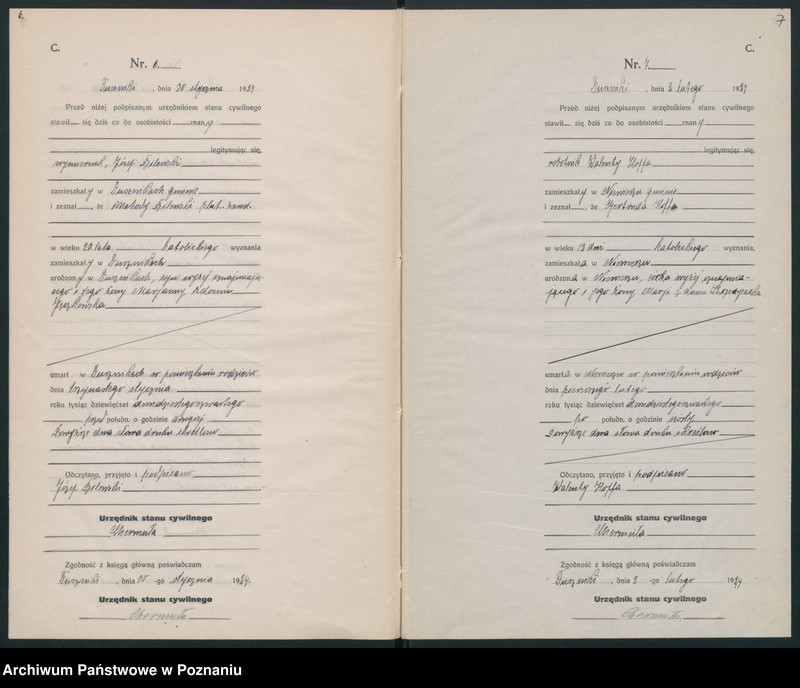 6.
C.
Nr. 6.
Duszniki, dnia 30 stycznia 1924
Przed niżej podpisanym urzędnikiem stanu cywilnego
stawił się dziś co do osobistości znany
legitymując się,
wymiernik, Józef
zamieszkały w Dusznikach gminie
i zeznał, że
w wieku 22 lata katolickiego wyznania
zamieszkały w Dusznikach
urodzony w Dusznikach, syn wyżej oznajmiają-
cego i jego żony Marjanny z domu
umarł w Dusznikach w pomieszkaniu rodziców
dnia trzynastego stycznia
roku tysiąc dziewięćset dwudziestegoczwartego
przed połudn. o godzinie drugiej
Powyższe dwa słowa druku skreślono
Odczytano, przyjęto i podpisano
Józef
Urzędnik stanu cywilnego
Zgodność z księgą główną poświadczam
Duszniki, dnia 30-go stycznia 1924.
Urzędnik stanu cywilnego
7
C.
Nr. 7.
Duszniki, dnia 2 lutego 1924
Przed niżej podpisanym urzędnikiem stanu cywilnego
stawił się dziś co do osobistości znany
legitymując się,
robotnik Walenty Hoffa
zamieszkały w Niewierzu gminie
i zeznał, że Gertruda Hoffa
w wieku 13 dni katolickiego wyznania,
zamieszkała w Niewierzu
urodzona w Niewierzu, córka wyżej oznajmia-
jącego i jego żony Marji z domu
umarła w Niewierzu w pomieszkaniu rodziców
dnia pierwszego lutego
roku tysiąc dziewięćset dwudziestegoczwartego
po połudn. o godzinie szóstej
Powyższe dwa słowa druku skreślono
Odczytano, przyjęto i podpisano
Walenty Hoffa
Urzędnik stanu cywilnego
Zgodność z księgą główną poświadczam
Duszniki, dnia 2-go lutego 1924
Urzędnik stanu cywilnego
Archiwum Państwowe w Poznaniu